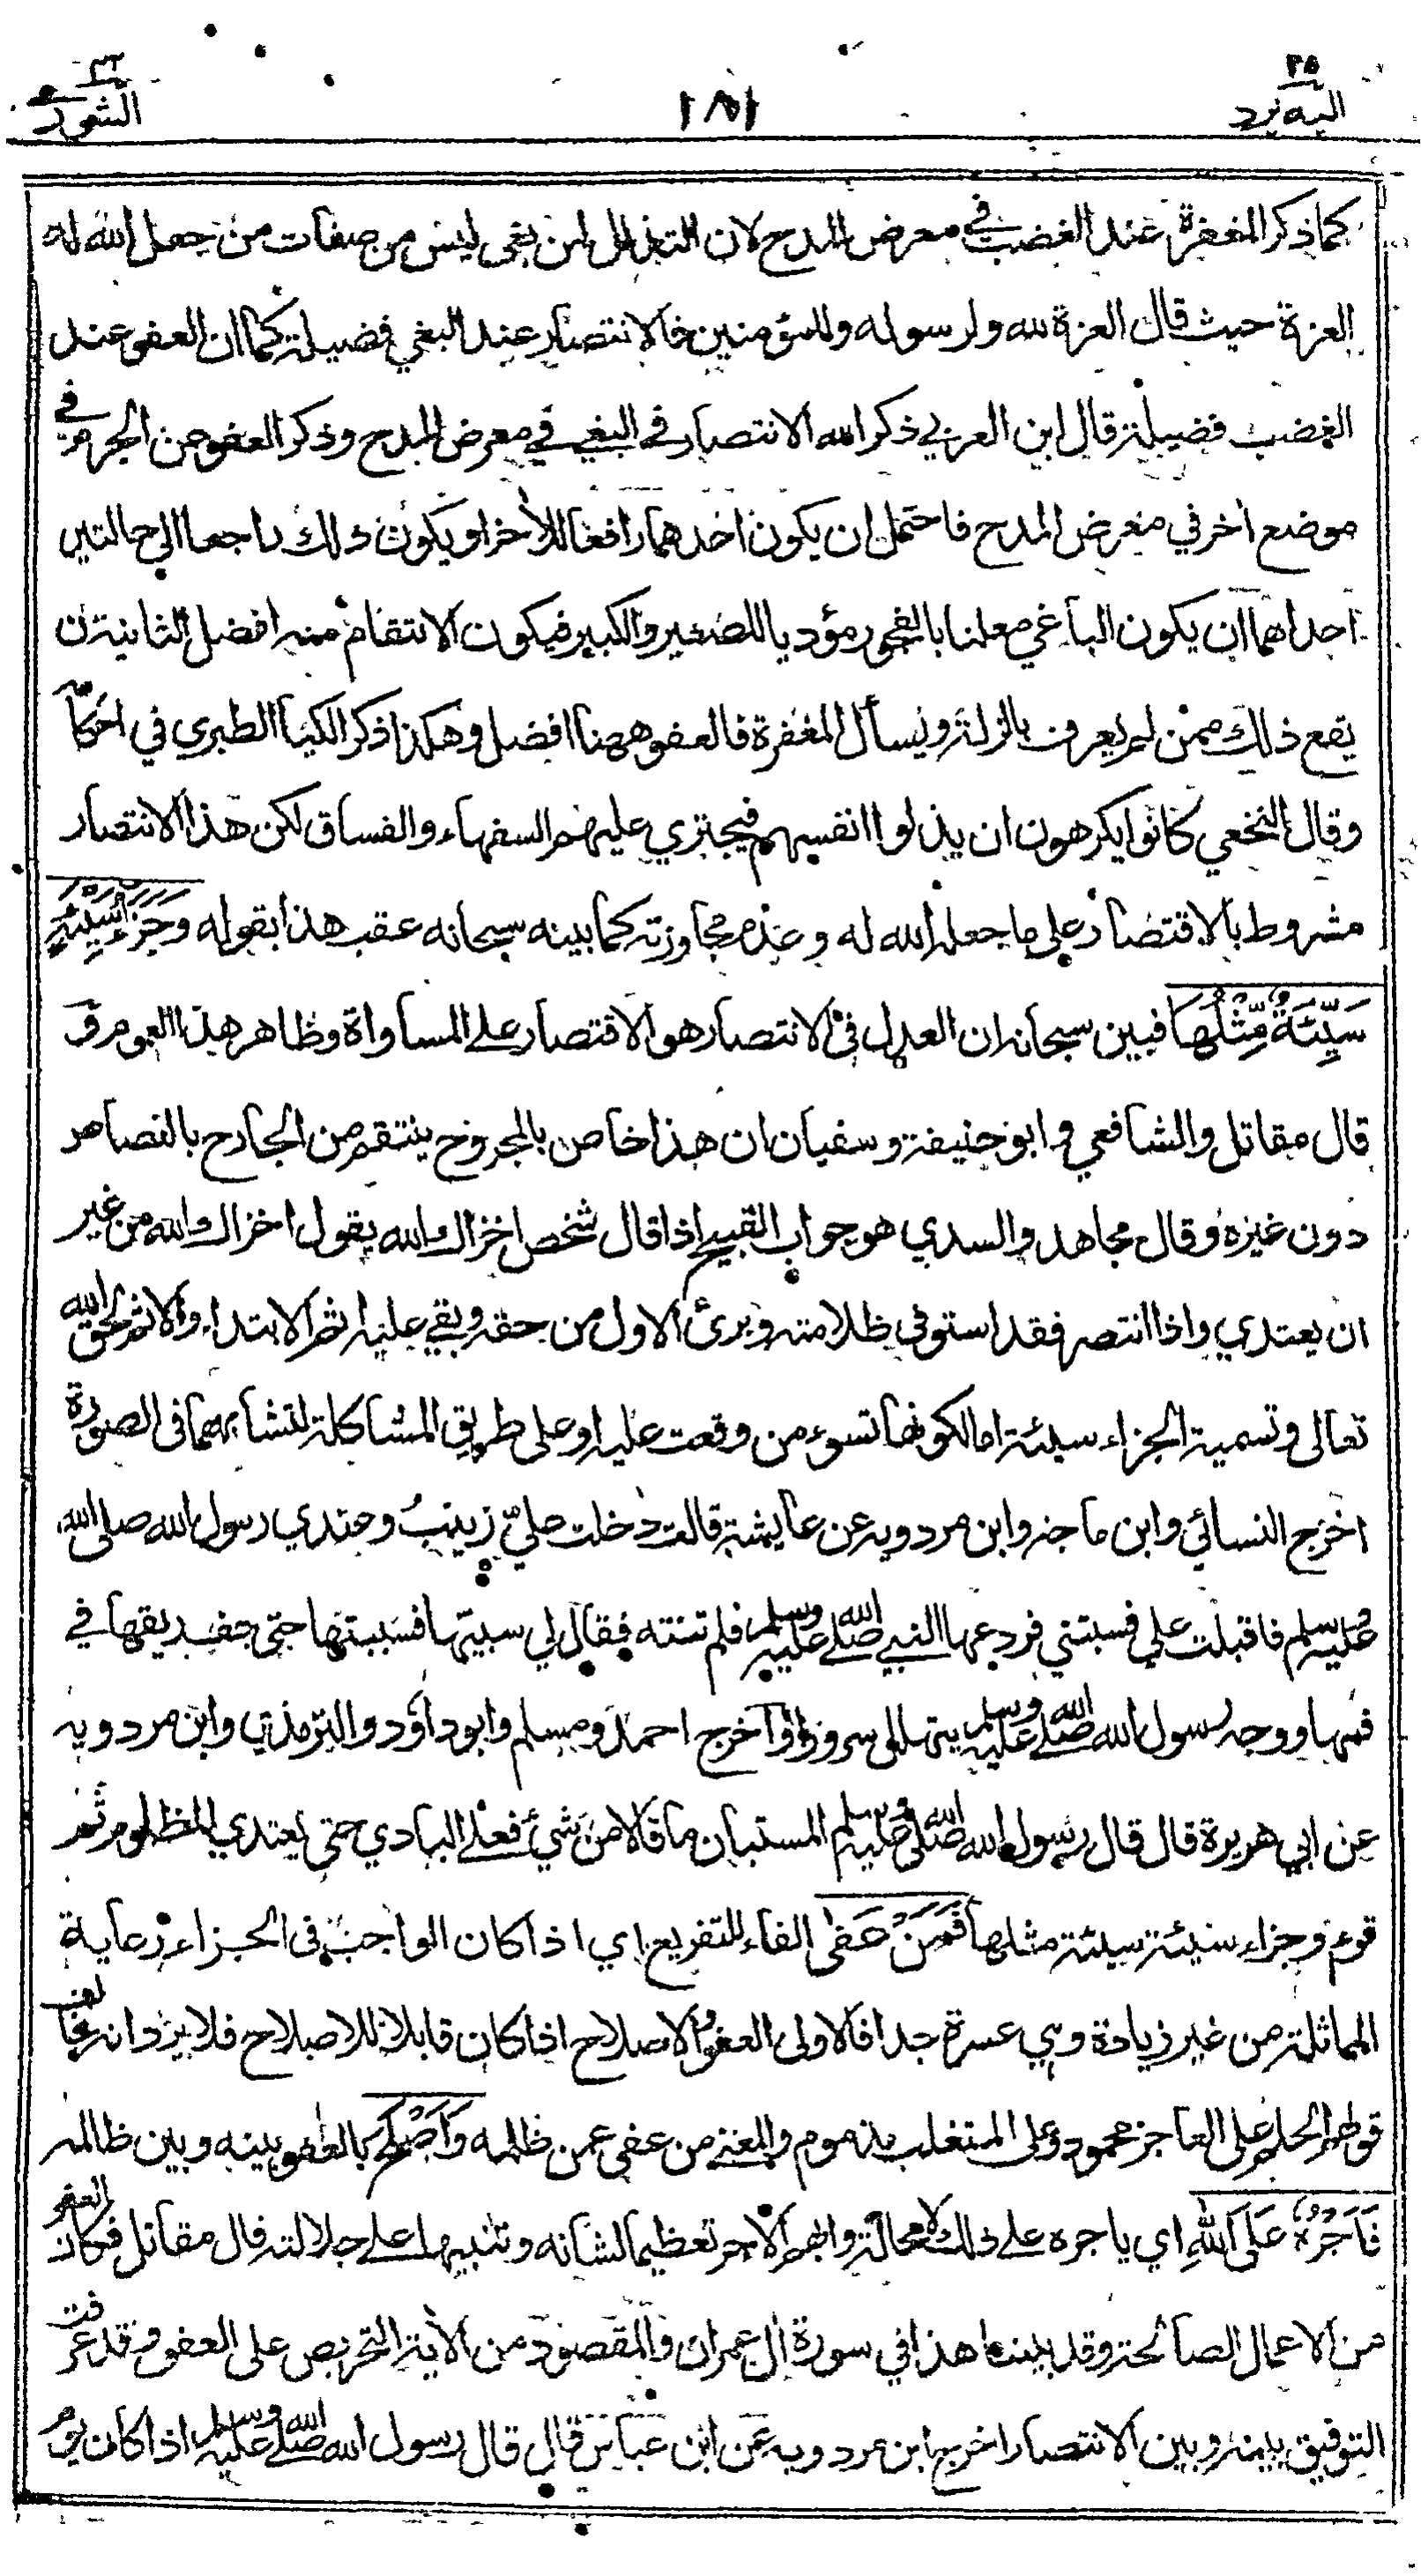 ٢٥
اليه يرد
١٨١
٤٢
الشورى
كما ذكر المغفرة عند الغضب في معرض المدح لان التذلل لمن بغى ليس من صفات من جعل الله له
العزة حيث قال العزة لله ولرسوله وللمؤمنين فالانتصار عند البغي فضيلة كما ان العفو عند
الغضب فضيلة قال ابن العربي ذكر الله الانتصار في البغي في معرض المدح وذكر العفو عن الجرم في
موضع اخر في معرض المدح فاحتمل ان يكون احدهما رافعا للأخر او يكون ذلك راجعا الى حالتين
احداهما ان يكون الباغي معلنا بالفجور مؤذيا للصغير والكبير فيكون الانتقام منه افضل الثانية ان
يقع ذلك ممن لم يعرف بالزلة ويسأل المغفرة فالعفو ههنا افضل وهكذا ذكر الكيا الطبري في احكامه
وقال النخعي كانوا يكرهون ان يذلوا انفسهم فيجترى عليهم السفهاء والفساق لكن هذا الانتصار
مشروط بالاقتصار على ما جعله الله له وعدم مجاوزته كما بينه سبحانه عقب هذا بقوله وَجَزَاءُ سَيِّئَةٍ
سَيِّئَةٌ مِّثْلُهَا فبين سبحانه ان العدل في الانتصار هو الاقتصار على المساواة وظاهر هذا العموم وقد
قال مقاتل والشافعي وابو حنيفة وسفيان ان هذا خاص بالمجروح ينتقم من الجارح بالقصاص
دون غيره وقال مجاهد والسدي هو جواب القبيح اذا قال شخص اخزاك الله يقول اخزاك الله من غير
ان يعتدي واذا انتصر فقد استوفى ظلامته وبرئ الاول من حقه وبقي عليه اثم الابتداء والاثم لحق الله
تعالى وتسمية الجزاء سيئة اما لكونها تسوء من وقعت عليه او على طريق المشاكلة لتشابههما في الصورة
اخرج النسائي وابن ماجه وابن مردويه عن عايشة قالت دخلت عليّ زينب وعندي رسول الله صلى الله
عليه وسلم فاقبلت علي فسبتني فردعها النبي صلى الله عليه وسلم فلم تنته فقال لي سبيها فسببتها حتى جف ريقها في
فمها ووجه رسول الله صلى الله عليه وسلم يتهلل سرورا واخرج احمد ومسلم وابو داؤد والترمذي وابن مردويه
عن ابي هريرة قال قال رسول الله صلى الله عليه وسلم المستبان ما قالا من شيء فعلى البادي حتى يعتدي المظلوم ثم
قرء وجزاء سيئة سيئة مثلها فَمَنْ عَفَى الفاء للتفريع اي اذا كان الواجب في الجزاء رعاية
المماثلة من غير زيادة وهي عسرة جدا فالاولى العفو والاصلاح اذا كان قابلا للاصلاح فلا يرد انه مخالف
قولهم الحلم على العاجز محمود وعلى المتغلب مذموم والمعنى من عفى عمن ظلمه وَأَصْلَحَ بالعفو بينه وبين ظالمه
فَأَجْرُهُ عَلَى اللهِ اي ياجره على ذلك لا محالة وابهم الاجر تعظيما لشانه وتنبيها على جلالته قال مقاتل فكان العفو
من الاعمال الصالحة وقد بينا هذا في سورة ال عمران والمقصود من الآية التحريض على العفو وقد عرفت
التوفيق بينه وبين الانتصار اخرج ابن مردويه عن ابن عباس قال قال رسول الله صلى الله عليه وسلم اذا كان يوم